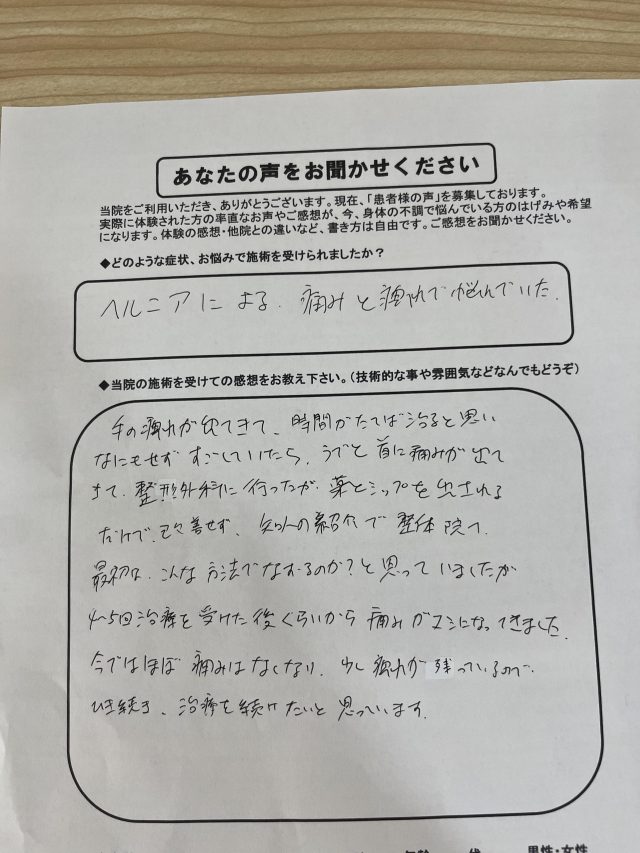 あなたの声をお聞かせください
当院をご利用いただき、ありがとうございます。現在、「患者様の声」を募集しております。
実際に体験された方の率直なお声やご感想が、今、身体の不調で悩んでいる方のはげみや希望
になります。体験の感想・他院との違いなど、書き方は自由です。ご感想をお聞かせください。
◆どのような症状、お悩みで施術を受けられましたか？
ヘルニアによる、痛みと痺れで悩んでいた。
◆当院の施術を受けての感想をお教え下さい。（技術的な事や雰囲気などなんでもどうぞ）
手の痺れが出てきて、時間がたてば治ると思い
なにもせずすごしていたら、うでと首に痛みが出て
きて、整形外科に行ったが、薬とシップを出される
だけで、改善せず、知人の紹介で整体院へ、
最初は、こんな方法でなおるのか？と思っていましたが
4~5回治療を受けた後ぐらいから痛みがマシになってきました。
今ではほぼ痛みはなくなり、少し痺れが残っているので、
ひき続き、治療を続けたいと思っています。
年齢 代 男性・女性